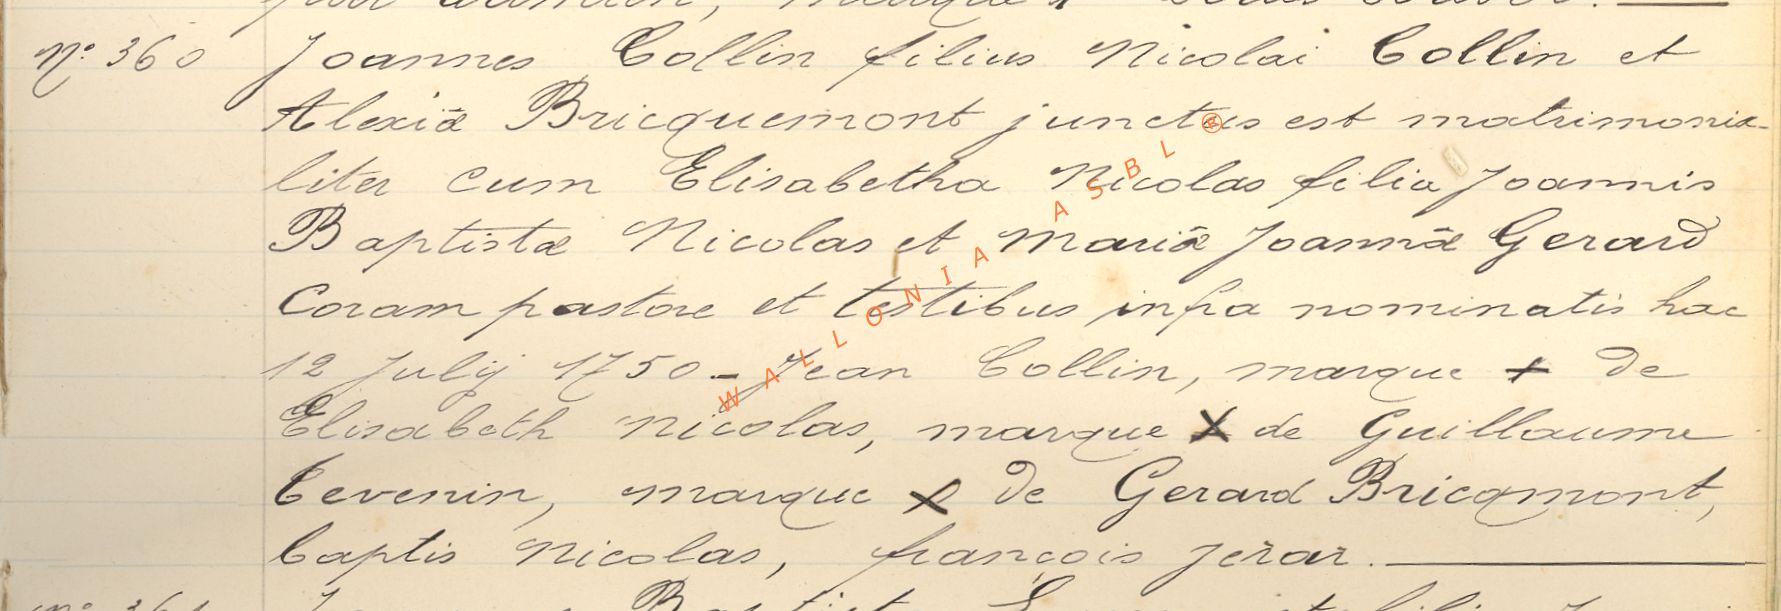 N° 360 Joannes Collin filius Nicolai Collin et
Alexiæ Bricquemont junctus est matrimonia-
liter cum Elisabetha Nicolas filia Joannis
Baptistæ Nicolas et Mariæ Joannæ Gerard
Coram pastore et testibus infra nominatis hac
12 Julij 1750 – Jean Collin, marque + de
Elisabeth Nicolas, marque X de Guillaume
Cevenin, marque X de Gerard Bricqmont,
baptis Nicolas, françois Jerar.
WALLONIA ASBL ®